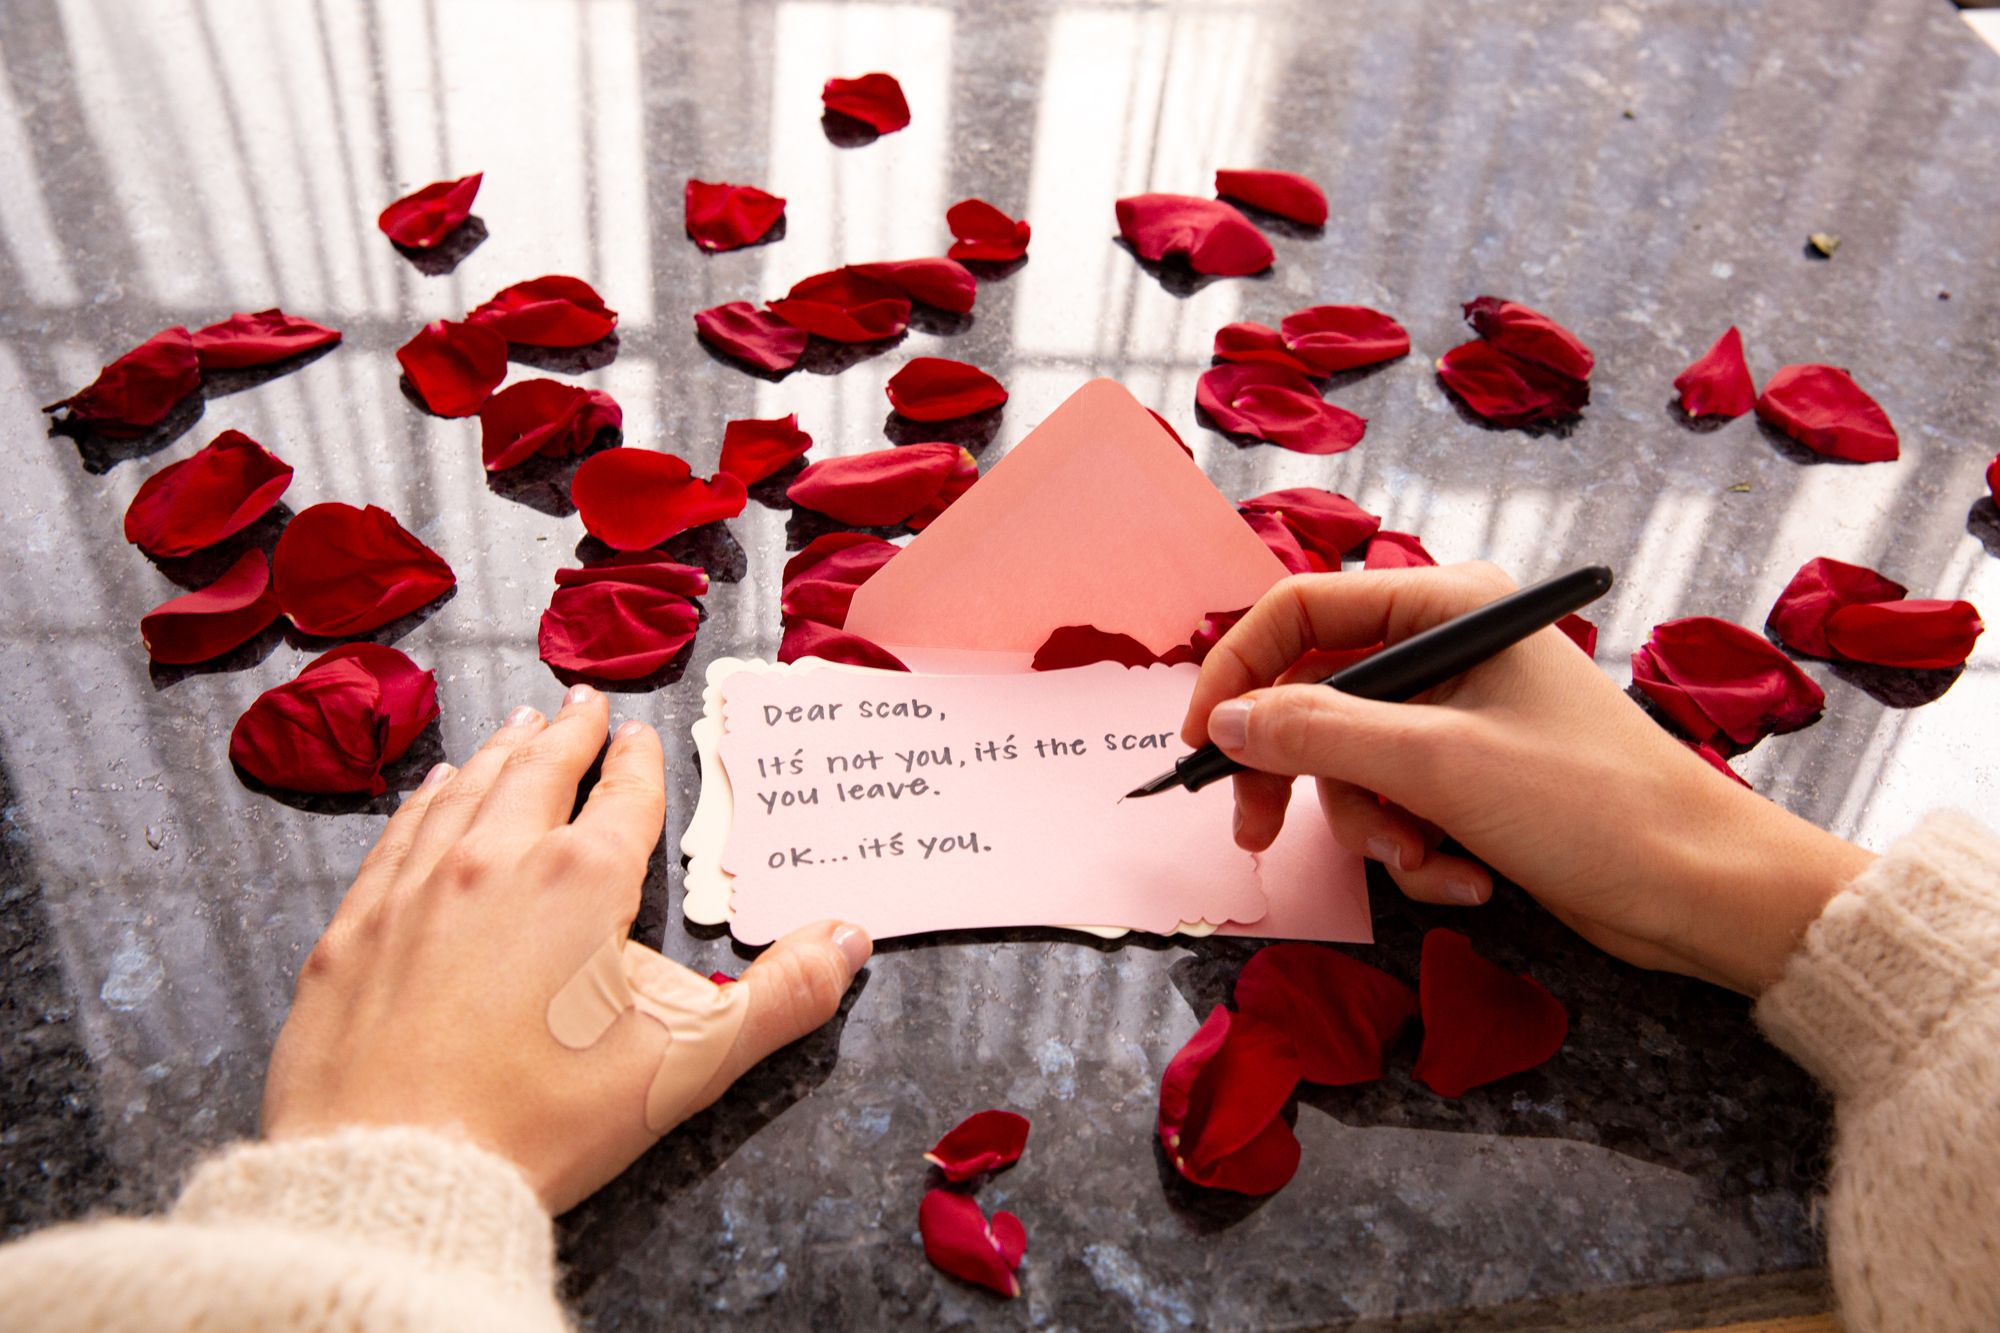 Dear scab,
It's not you, it's the scar
you leave.
OK... it's you.